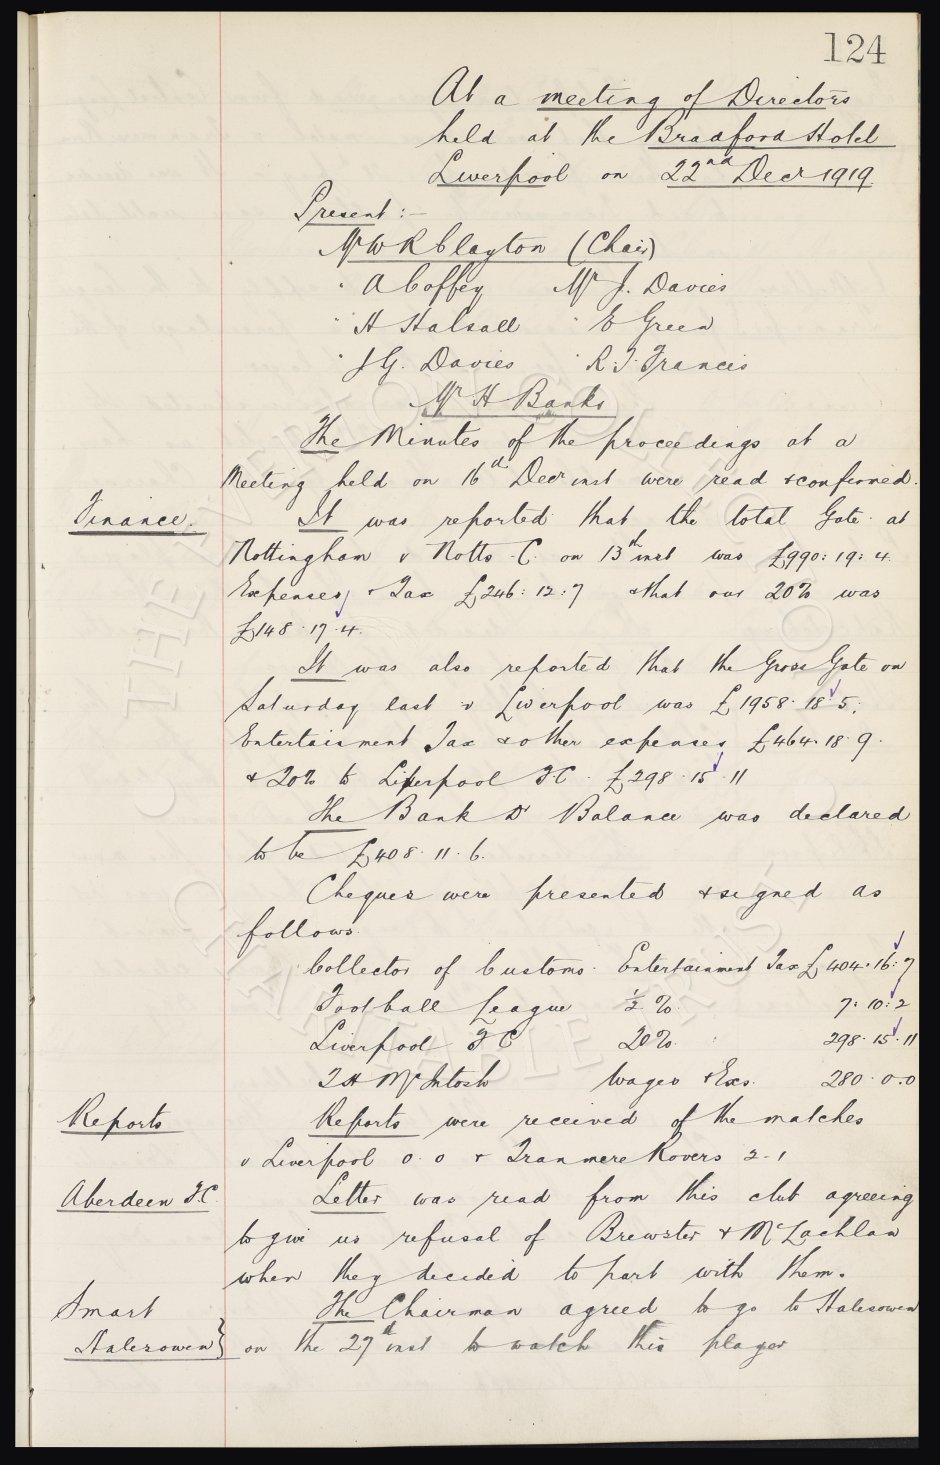 124
At a meeting of Directors
held at the Bradford Hotel
Liverpool on 22nd Decr 1919.
Present :-
Mr W R Clayton (Chair)
" A Coffey Mr J. Davies
" H Halsall " E Green
" J G. Davies " R. T. Francis
Mr H Banks
The Minutes of the proceedings at a
Meeting held on 16th Decr inst were read & confirmed.
Finance. It was reported that the total Gate at
Nottingham v Notts C. on 13th inst was £990: 19: 4.
Expenses & Tax £246: 12: 7 & that our 20% was
£148. 17. 4.
It was also reported that the Gross Gate on
Saturday last v Liverpool was £1958. 18. 5;
Entertainment Tax & other expenses £464. 18. 9.
& 20% to Liverpool F C. £298. 15. 11
The Bank Dr Balance was declared
to be £408. 11. 6.
Cheques were presented & signed as
follows.
Collector of Customs. Entertainment Tax £404. 16: 7
Football League ½ %. 7: 10: 2
Liverpool F C 20% " 298. 15. 11
T H McIntosh Wages & Exs. 280. 0. 0
Reports Reports were received of the matches
v Liverpool 0. 0 & Tranmere Rovers 2 - 1
Aberdeen F.C. Letter was read from this club agreeing
to give us refusal of Brewster & McLachlan
when they decided to part with them.
Smart The Chairman agreed to go to Halesowen
Halesowen } on the 27th inst to watch this player
THE EVERTON COLLECTION CHARITABLE TRUST